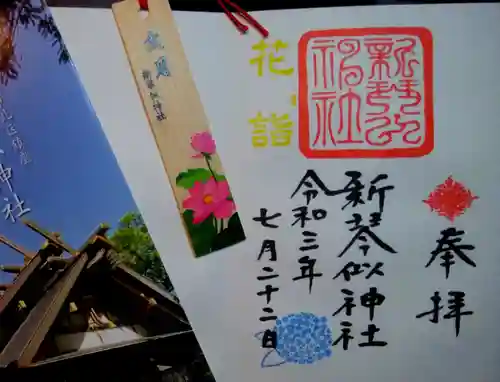 奉拝
新琴似神社
令和三年
七月二十二日
花詣
新琴似神社
歳男
新琴似神社
神社